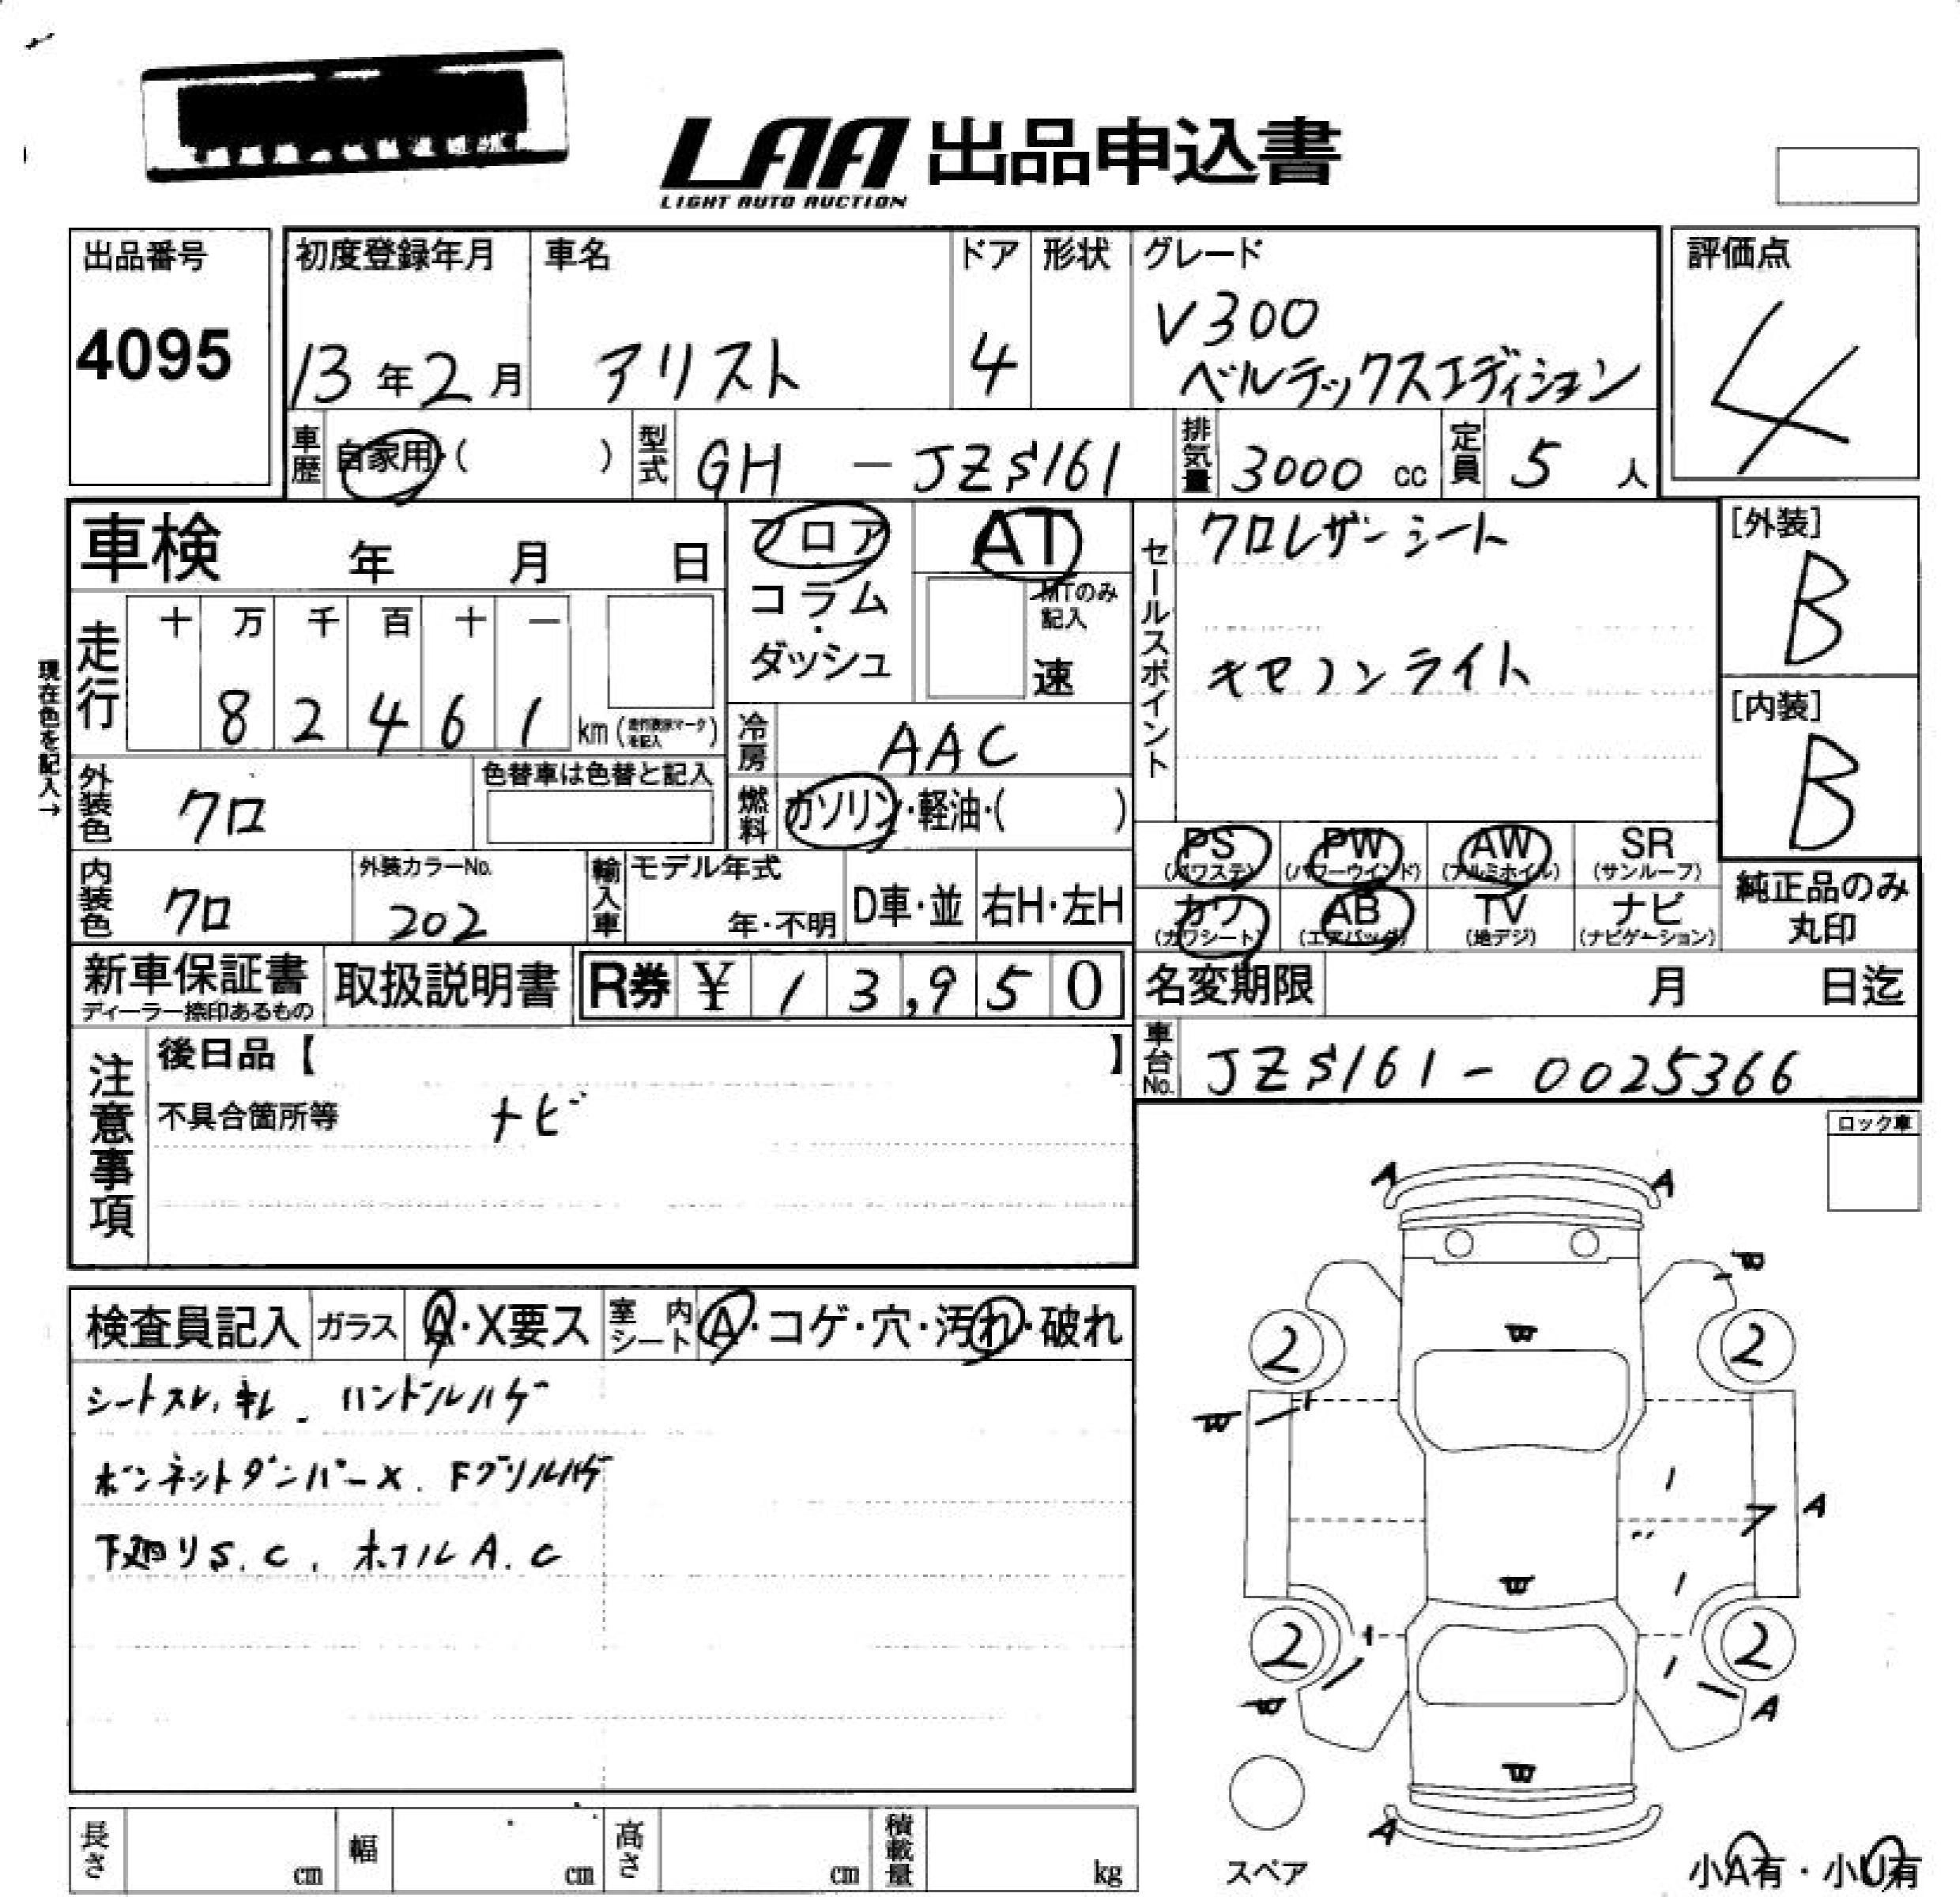 LAA 出品申込書
LIGHT AUTO AUCTION
出品番号
4095
初度登録年月
13年2月
車名
アリスト
ドア
4
形状
グレード
V300
ベルテックスエディション
評価点
4
車歴 自家用・( )
型式 GH － JZS161
排気量 3000 cc
定員 5 人
車検 年 月 日
フロア
コラム
・
ダッシュ
AT
MTのみ
記入
速
セールスポイント
クロレザーシート
キセノンライト
[外装]
B
[内装]
B
現在色を記入→
走行
十 万 千 百 十 一
8 2 4 6 1 km
冷房 AAC
燃料 ガソリン・軽油・( )
外装色 クロ
色替車は色替と記入
内装色 クロ
外装カラーNo.
202
輸入車
モデル年式
年・不明
D車・並
右H・左H
PS (パワステ)
PW (パワーウインド)
AW (アルミホイル)
SR (サンルーフ)
カワ (カワシート)
AB (エアバッグ)
TV (地デジ)
ナビ (ナビゲーション)
純正品のみ
丸印
新車保証書
ディーラー捺印あるもの
取扱説明書
R券 ¥ 1 3,9 5 0
名変期限 月 日迄
車台No. JZS161－0025366
注意事項
後日品【 】
不具合箇所等 ナビ
ロック車
検査員記入
ガラス A・X要ス
室内シート A・コゲ・穴・汚れ・破れ
シートスレ、キレ、ハンドルハゲ
ボンネットダンパーX、Fグリルハゲ
下廻りS.C、ホイルA.C
A A
2 2
W
A
2 2
W
A
W
A
スペア
小A有・小U有
長さ cm
幅 cm
高さ cm
積載量 kg